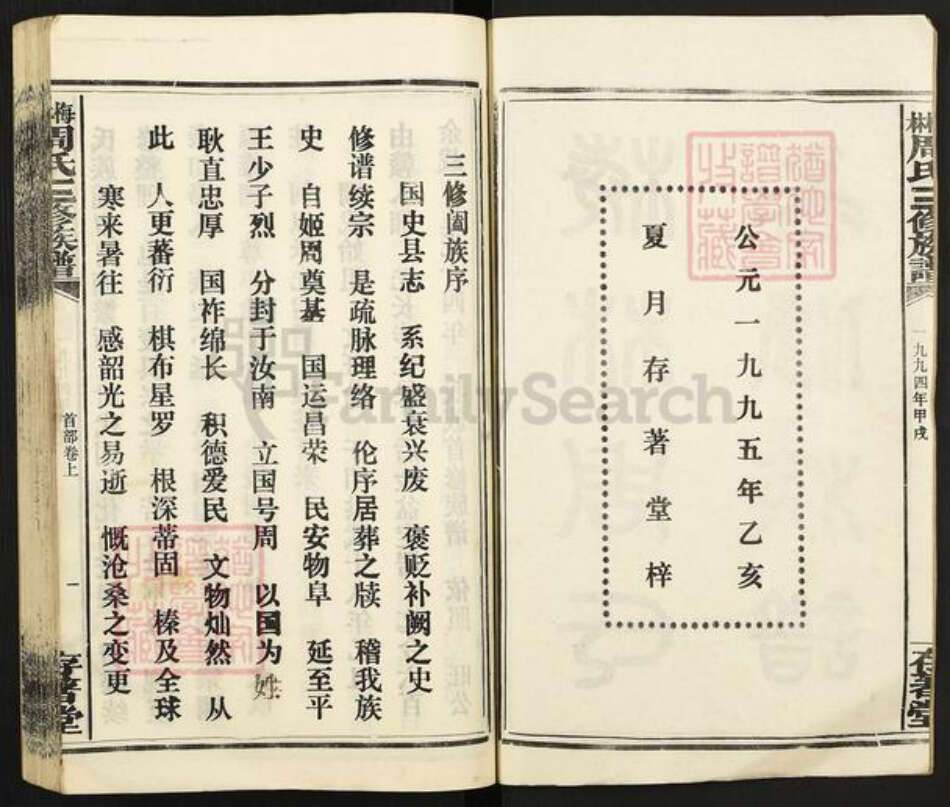 林周氏三修族譜
一九九四年甲戌
存著堂
公元一九九五年乙亥
夏月存著堂梓
三修阖族序
国史县志 系纪盛衰兴废 褒贬补阙之史
修谱续宗 是疏脉理络 伦序居葬之牍 稽我族
史 自姬周奠基 国运昌荣 民安物阜 延至平
王少子烈 分封于汝南 立国号周 以国为姓
耿直忠厚 国祚绵长 积德爱民 文物灿然 从
此 人更蕃衍 棋布星罗 根深蒂固 榛及全球
寒来暑往 感韶光之易逝 慨沧桑之变更
梅周氏三修族譜
首部卷上
一
存著堂
FamilySearch